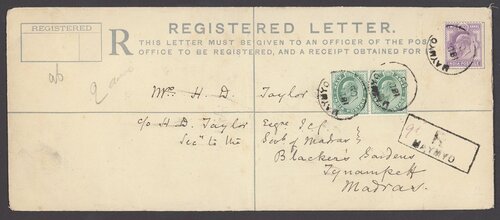 REGISTERED LETTER.
REGISTERED
R
THIS LETTER MUST BE GIVEN TO AN OFFICER OF THE POST
OFFICE TO BE REGISTERED, AND A RECEIPT OBTAINED FOR
MAYMYO
MAYMYO
Mrs. H. D. Taylor
c/o H. D. Taylor Esqre I.C.S.
Secy to the Govt of Madras
Blacker's Gardens
Tynampett
Madras
MAYMYO